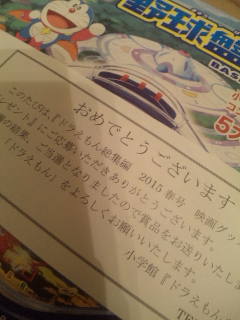 野球盤
BAS
小
コ
5プ
おめでとうございます
このたびは、『ドラえもん総集編 2015 春号 映画グッ
ゼント』にご応募いただきありがとうございます。
の結果、ご当選となりましたので賞品をお送りいたしま
『ドラえもん』をよろしくお願いいたします。
小学館『ドラえもん
TE